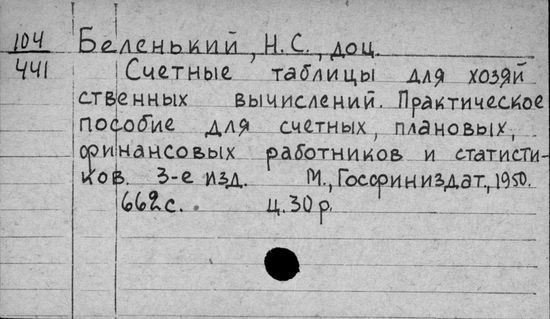 104 Беленький, Н.С., доц.
441 Счетные таблицы для хозяй
ственных вычислений. Практическое
пособие для счетных, плановых,
финансовых работников и статисти-
ков. 3-е изд. М., Госфиниздат, 1950.
662 с. ц. 30 р.